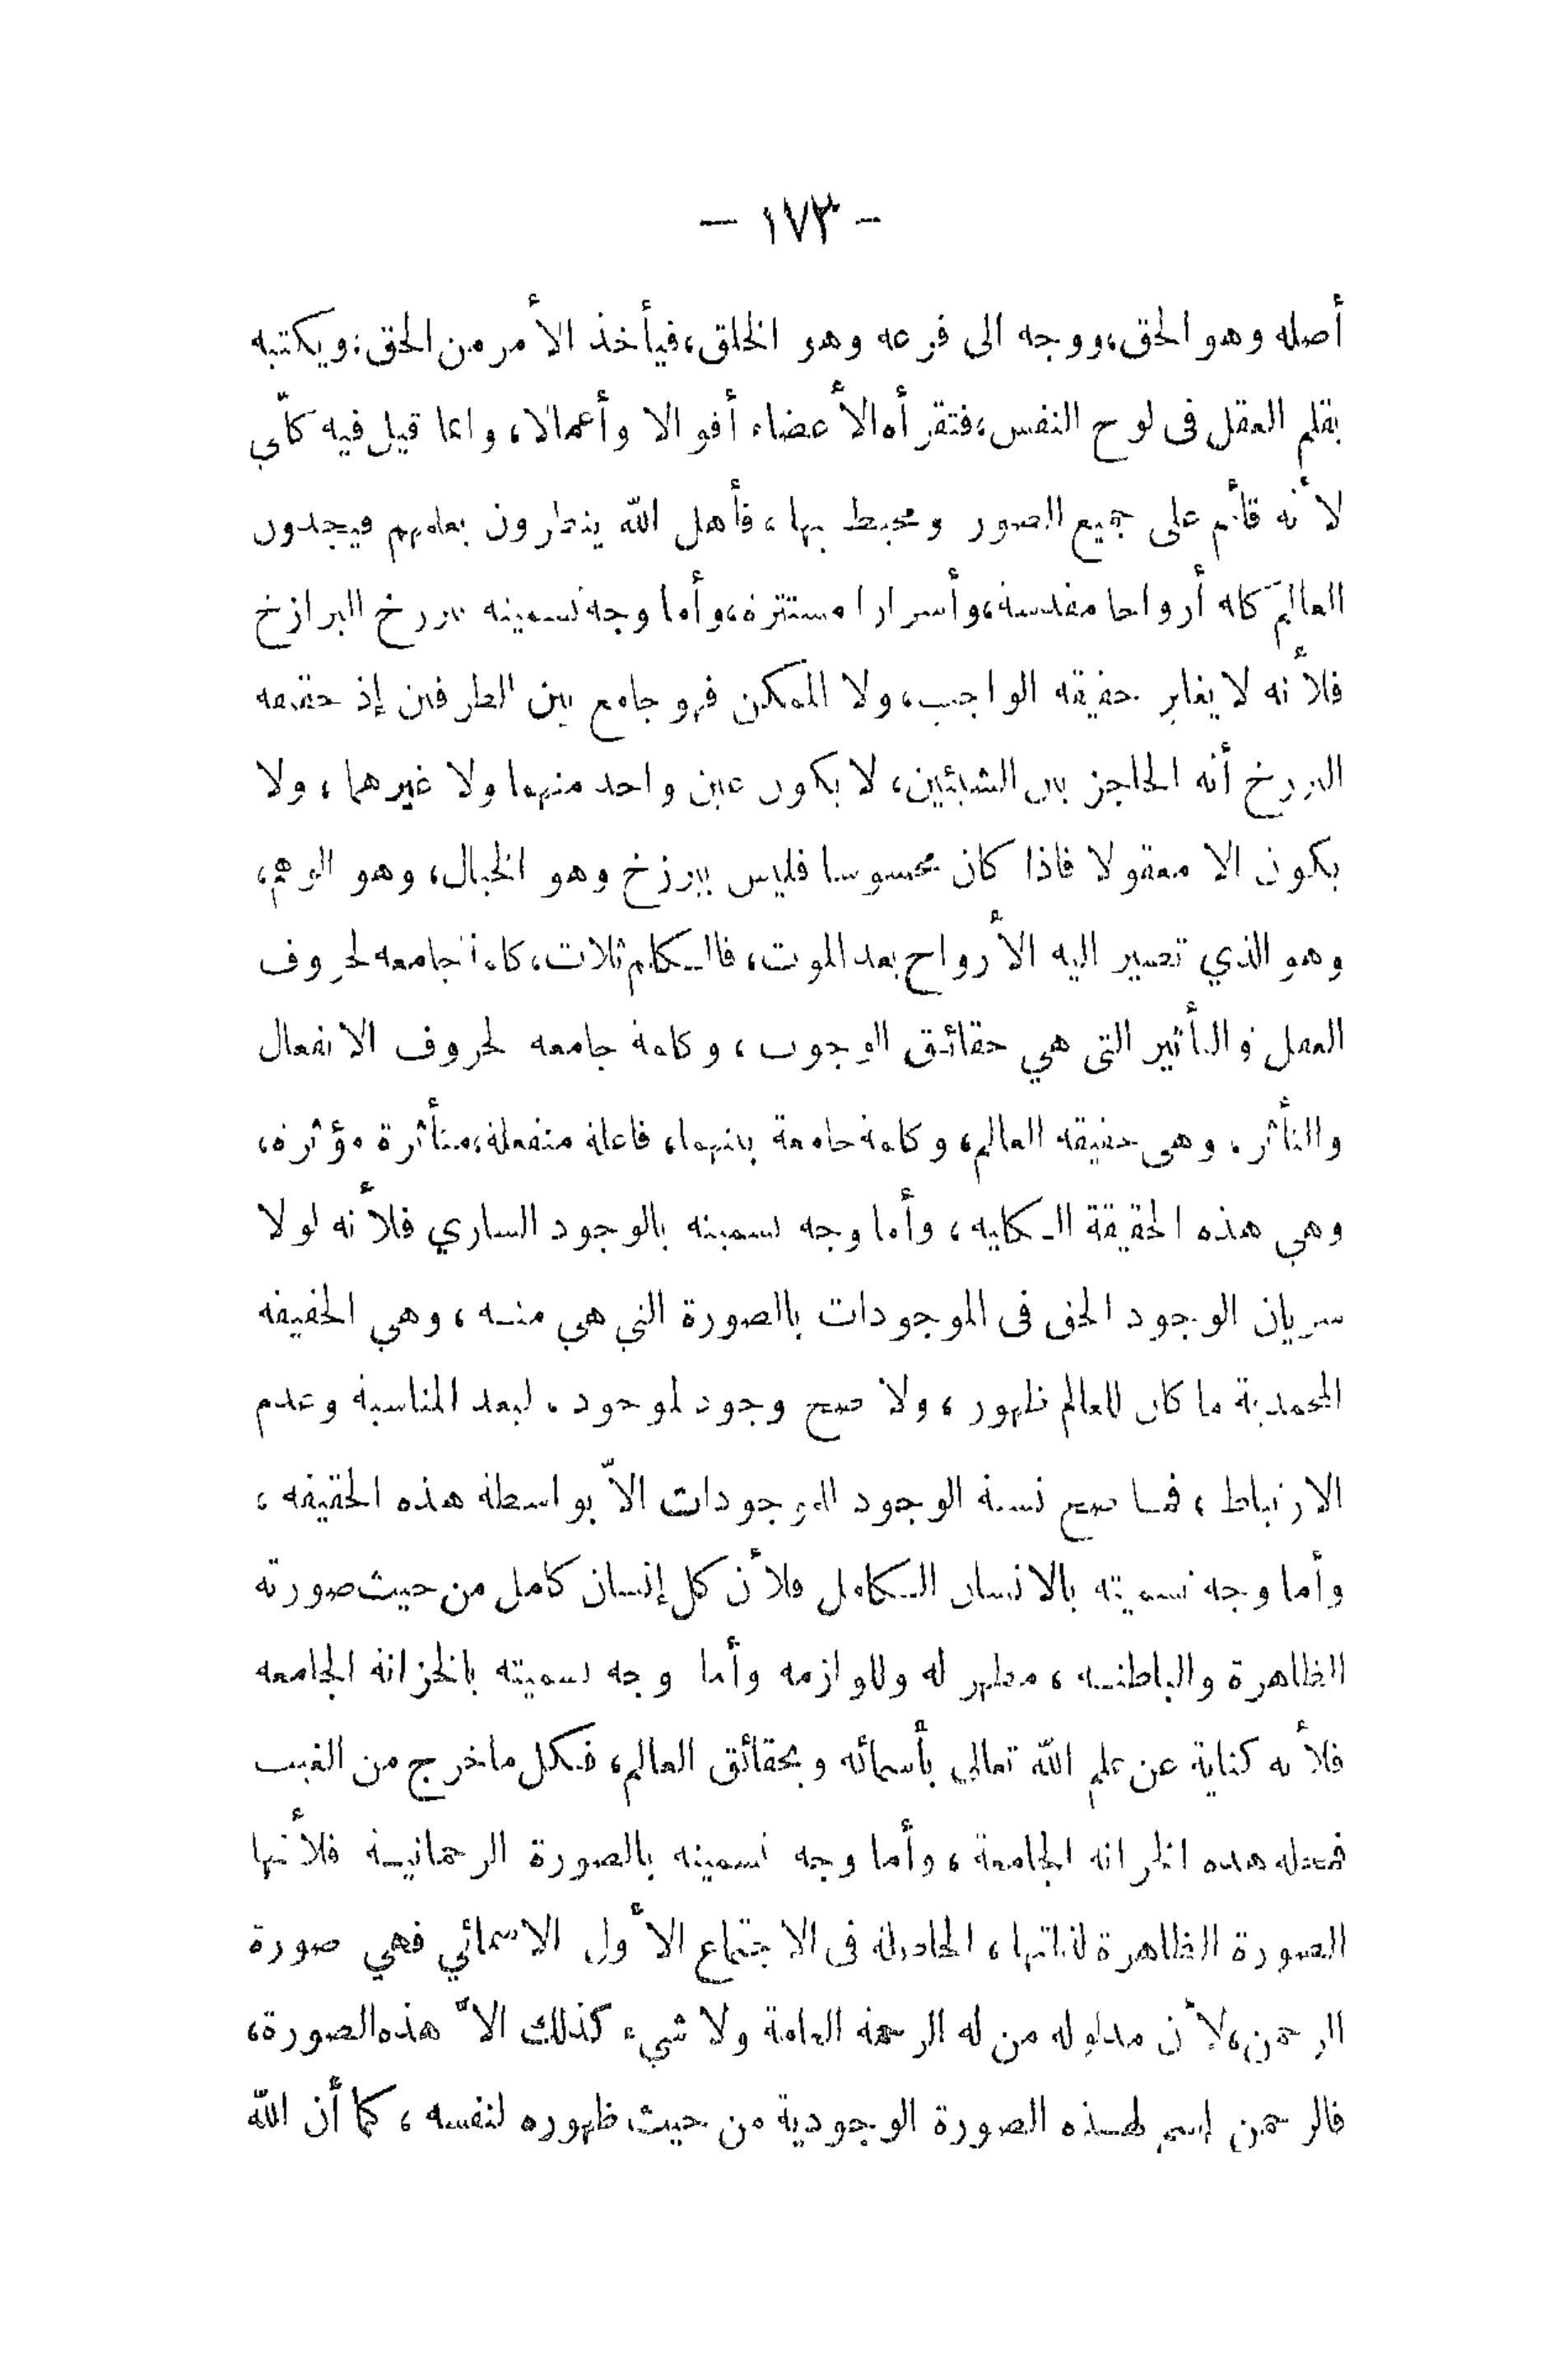 - ١٧٣ -
أصله وهو الحق، ووجه الى فرعه وهو الخلق، فيأخذ الأمر من الحق، ويكتبه
بقلم العقل فى لوح النفس، فتقرأه الأعضاء أقوالا وأعمالا، وانما قيل فيه كلّي
لأنه قائم على جميع الصور ومحيط بها، فأهل الله ينظرون بعلمهم فيجدون
العالمَ كله أرواحا مقدسة، وأسرارا مستترة، وأما وجه تسميته ببرزخ البرازخ
فلأنه لا يغاير حقيقة الواجب، ولا الممكن فهو جامع بين الطرفين إذ حقيقة
البرزخ أنه الحاجز بين الشيئين، لا يكون عين واحد منهما ولا غيرهما، ولا
يكون الا معقولا فاذا كان محسوسا فليس ببرزخ وهو الخيال، وهو الوهم،
وهو الذي تصير اليه الأرواح بعد الموت، فالكلم ثلاث، كلمة جامعة لحروف
الفعل والتأثير التى هي حقائق الوجوب، وكلمة جامعة لحروف الانفعال
والتأثر، وهى حقيقة العالم، وكلمة جامعة بينهما، فاعلة منفعلة، متأثرة مؤثرة،
وهي هذه الحقيقة الكلية، وأما وجه تسميته بالوجود الساري فلأنه لولا
سريان الوجود الحق فى الموجودات بالصورة التي هي منه، وهي الحقيقة
المحمدية ما كان للعالم ظهور، ولا صح وجود لموجود، لبعد المناسبة وعدم
الارتباط، فما صح نسبة الوجود للموجودات الاّ بواسطة هذه الحقيقة،
وأما وجه تسميته بالانسان الكامل فلأن كل إنسان كامل من حيث صورته
الظاهرة والباطنة، مظهر له وللوازمه وأما وجه تسميته بالخزانة الجامعة
فلأنه كناية عن علم الله تعالى بأسمائه وبحقائق العالم، فكل ما خرج من الغيب
فمحله هذه الخزانة الجامعة، وأما وجه تسميته بالصورة الرحمانية فلأنها
الصورة الظاهرة لذاتها، الحاصلة فى الاجتماع الأول الاسمائي فهي صورة
الرحمن، لأن مدلوله من له الرحمة العامة ولا شيء كذلك الاّ هذه الصورة،
فالرحمن إسم لهذه الصورة الوجودية من حيث ظهوره لنفسه، كما أن الله